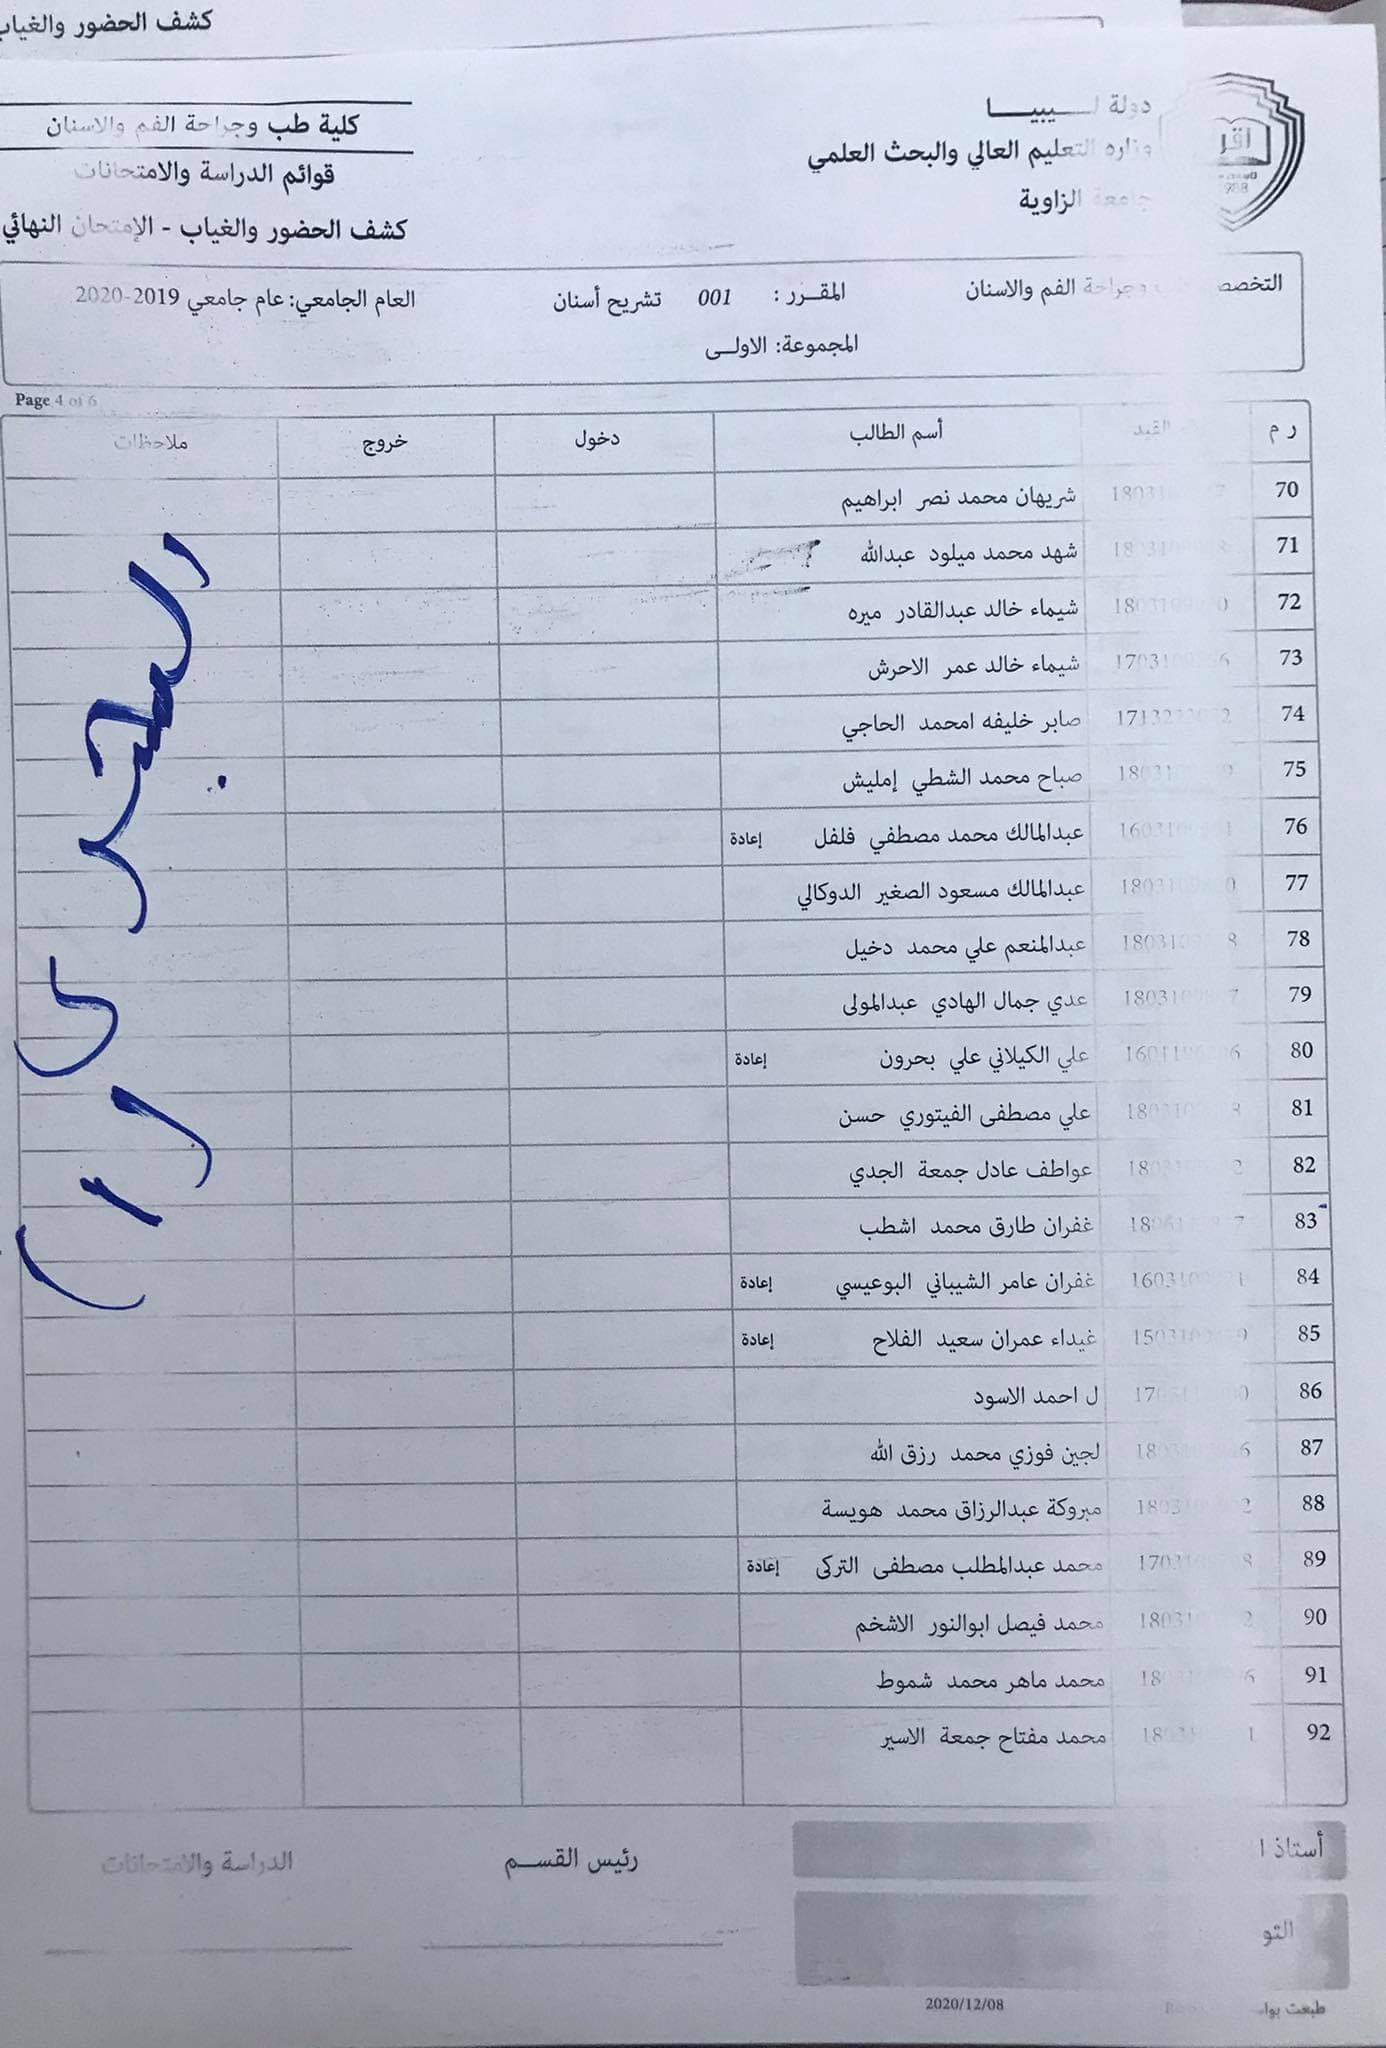 كشف الحضور والغياب
دولة ليبيا
وزاره التعليم العالي والبحث العلمي
جامعة الزاوية
اقرأ
كلية طب وجراحة الفم والاسنان
قوائم الدراسة والامتحانات
كشف الحضور والغياب - الإمتحان النهائي
التخصص وجراحة الفم والاسنان المقرر : 001 تشريح أسنان العام الجامعي: عام جامعي 2019-2020
المجموعة: الاولى
Page 4 of 6
ر م القيد أسم الطالب دخول خروج ملاحظات
70 شريهان محمد نصر ابراهيم
71 شهد محمد ميلود عبدالله
72 شيماء خالد عبدالقادر ميره
73 شيماء خالد عمر الاحرش
74 صابر خليفه امحمد الحاجي
75 صباح محمد الشطي إمليش
76 عبدالمالك محمد مصطفي فلفل إعادة
77 عبدالمالك مسعود الصغير الدوكالي
78 عبدالمنعم علي محمد دخيل
79 عدي جمال الهادي عبدالمولى
80 علي الكيلاني علي بحرون إعادة
81 علي مصطفى الفيتوري حسن
82 عواطف عادل جمعة الجدي
83 غفران طارق محمد اشطب
84 غفران عامر الشيباني البوعيسي إعادة
85 غيداء عمران سعيد الفلاح إعادة
86 ل احمد الاسود
87 لجين فوزي محمد رزق الله
88 مبروكة عبدالرزاق محمد هويسة
89 محمد عبدالمطلب مصطفى التركى إعادة
90 محمد فيصل ابوالنور الاشخم
91 محمد ماهر محمد شموط
92 محمد مفتاح جمعة الاسير
أستاذ ا رئيس القسم الدراسة والامتحانات
التو
طبعت بوا 2020/12/08